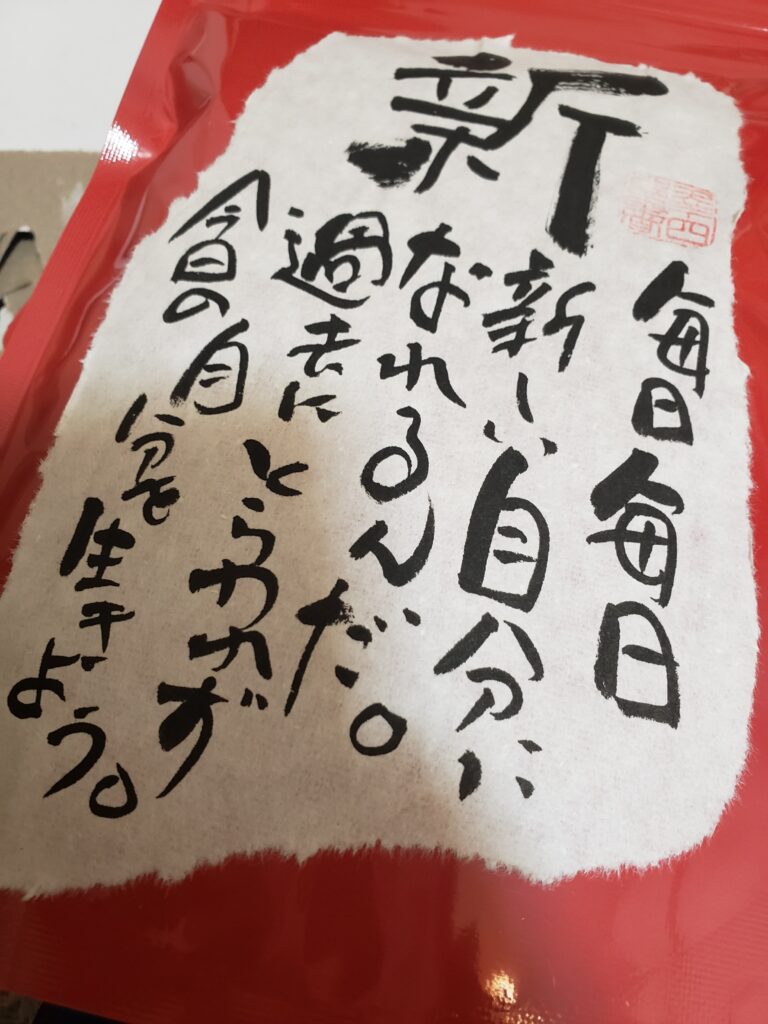 新
毎日毎日
新しい自分に
なれるんだ。
過去にとらわれず
今日の自分を生きよう。